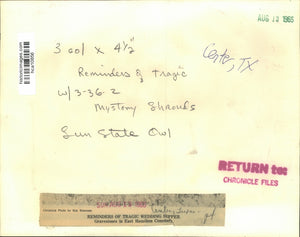 AUG 13 1965
historicimages.com
3 col x 4 1/2
Center, TX
Reminders of tragic
w/ 3-36-2
Mystery Shrouds
Sun State Owl
RETURN to:
CHRONICLE FILES
REMINDERS OF TRAGIC WEDDING SUPPER
Gravestones in East Hamilton Cemetery